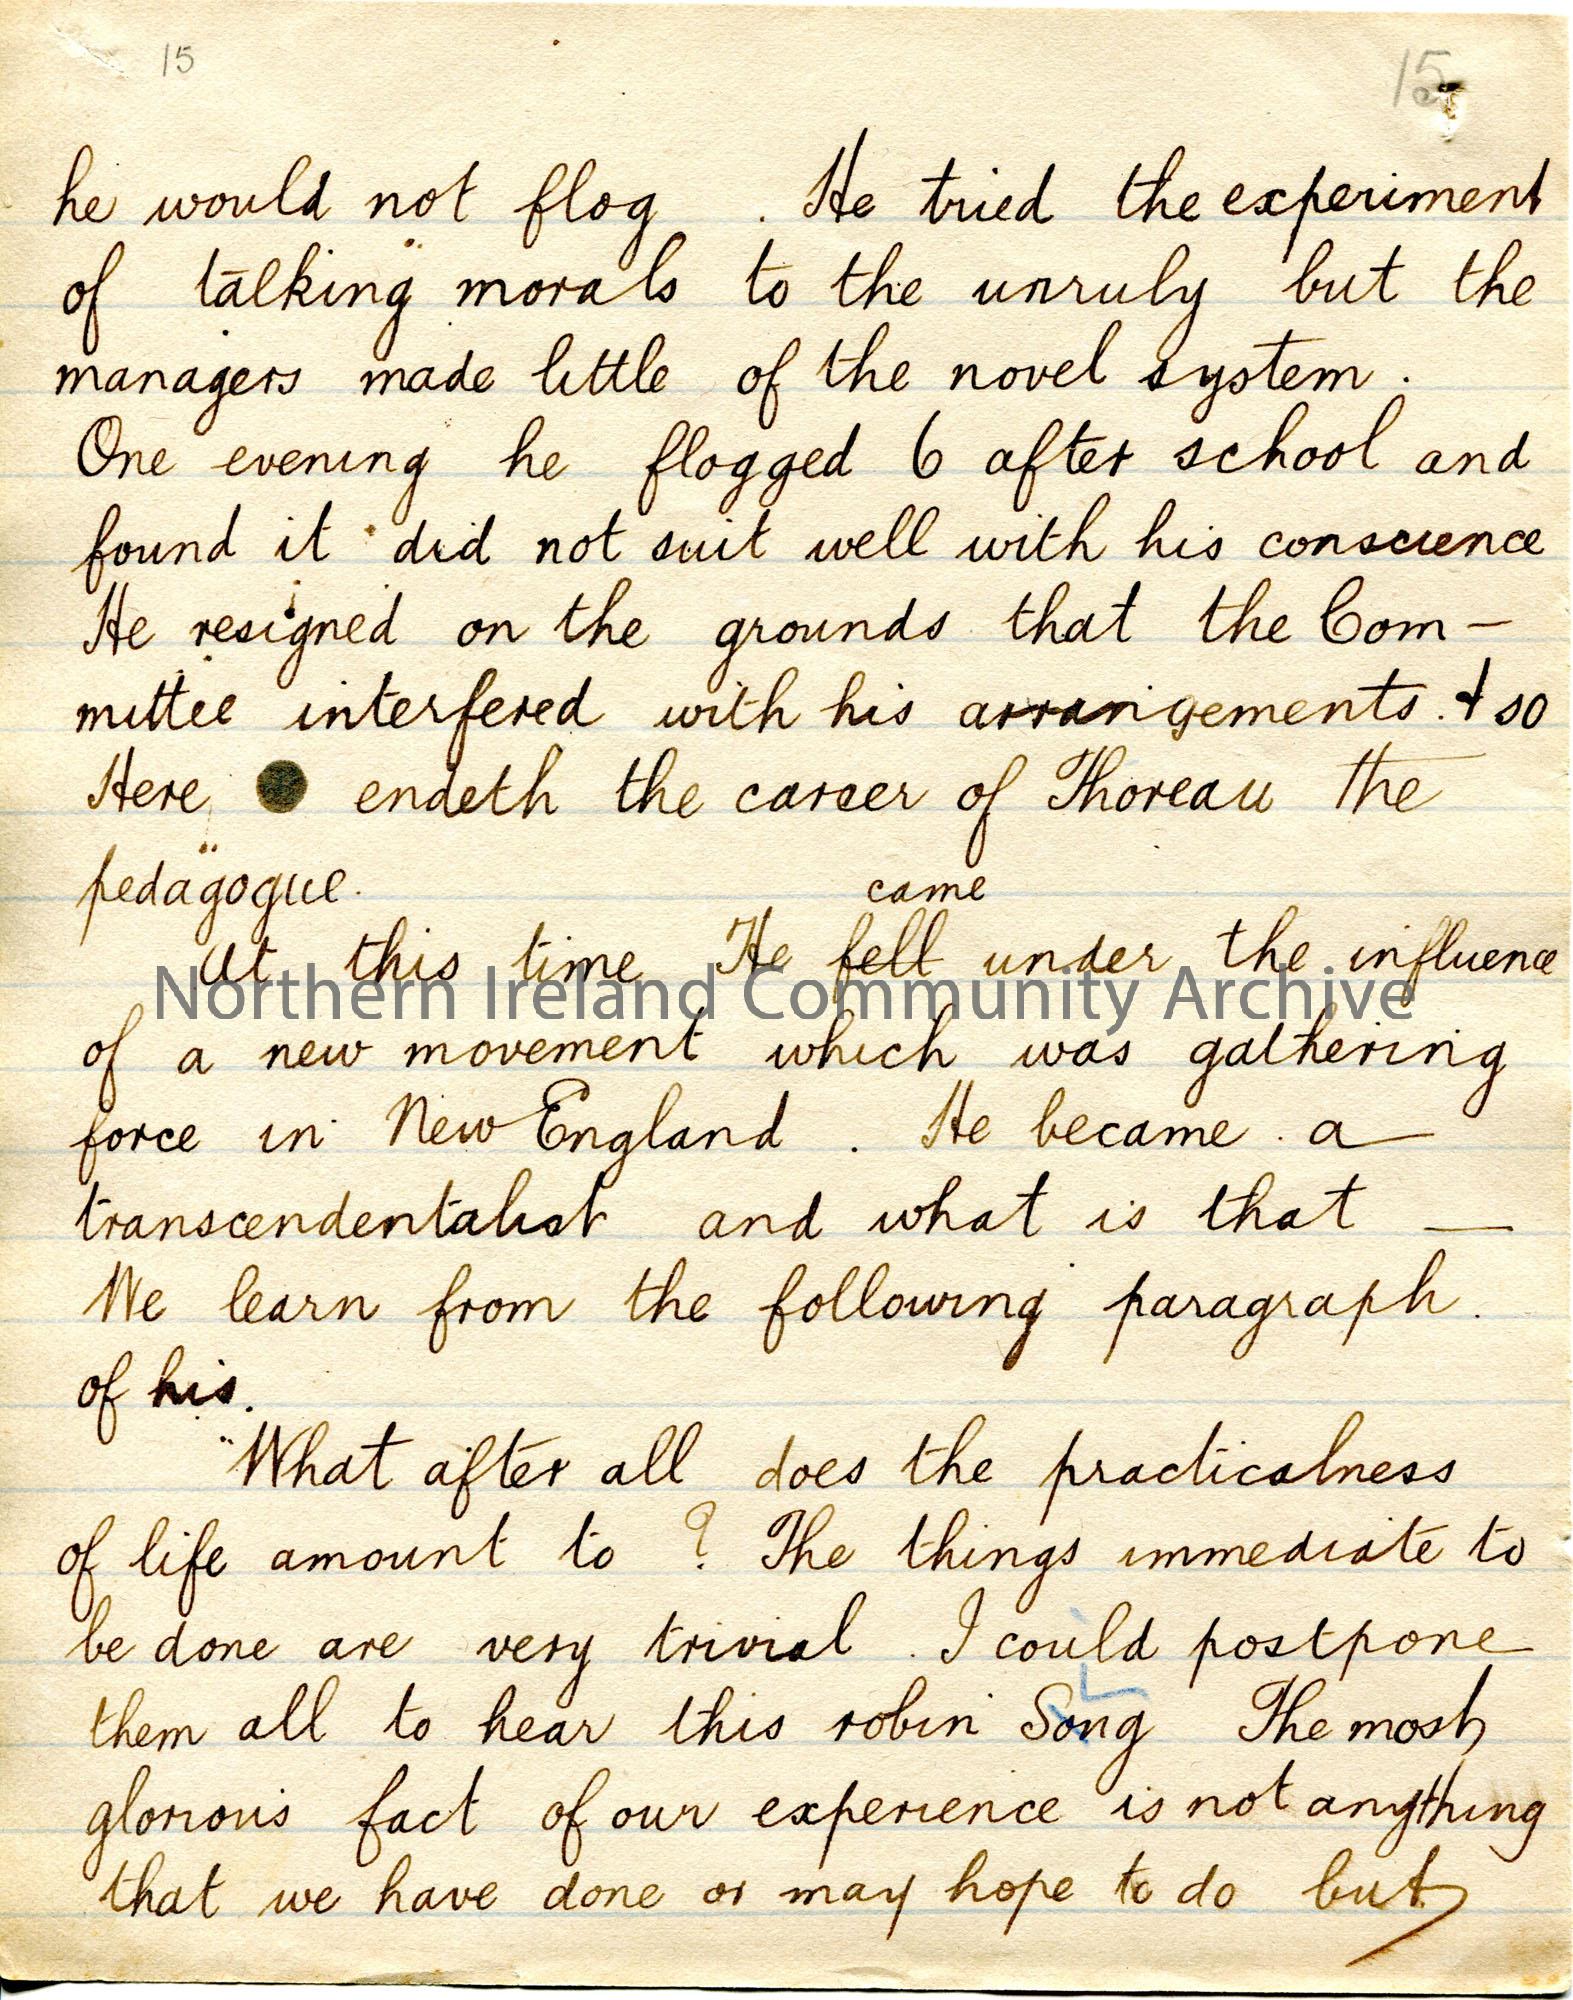 15 15
he would not flog . He tried the experiment
of talking morals to the unruly but the
managers made little of the novel system .
One evening he flogged 6 after school and
found it did not suit well with his conscience
He resigned on the grounds that the Com-
mittee interfered with his arrangements . & so
Here endeth the career of Thoreau the
pedagogue.
came
At this time He fell under the influence
Northern Ireland Community Archive
of a new movement which was gathering
force in New England . He became a
transcendentalist and what is that —
We learn from the following paragraph .
of his.
"What after all does the practicalness
of life amount to ? The things immediate to
be done are very trivial . I could postpone
them all to hear this robin Song The most
glorious fact of our experience is not anything
that we have done or may hope to do but